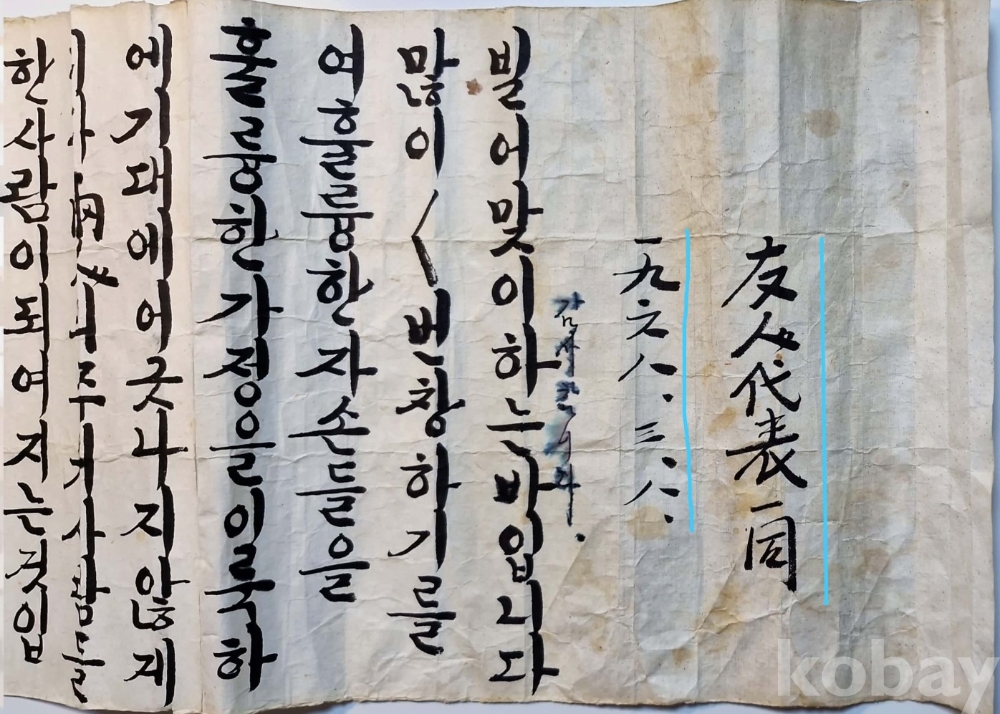 한사람이되여지는것입
사람들
에기대에어긋나지않게
훌륭한가정을이룩하
여훌륭한자손들을
많이〱번창하기를
빌어맞이하는바입니다
감사합니다.
一九六八、三、八、
友人代表一同
kobay